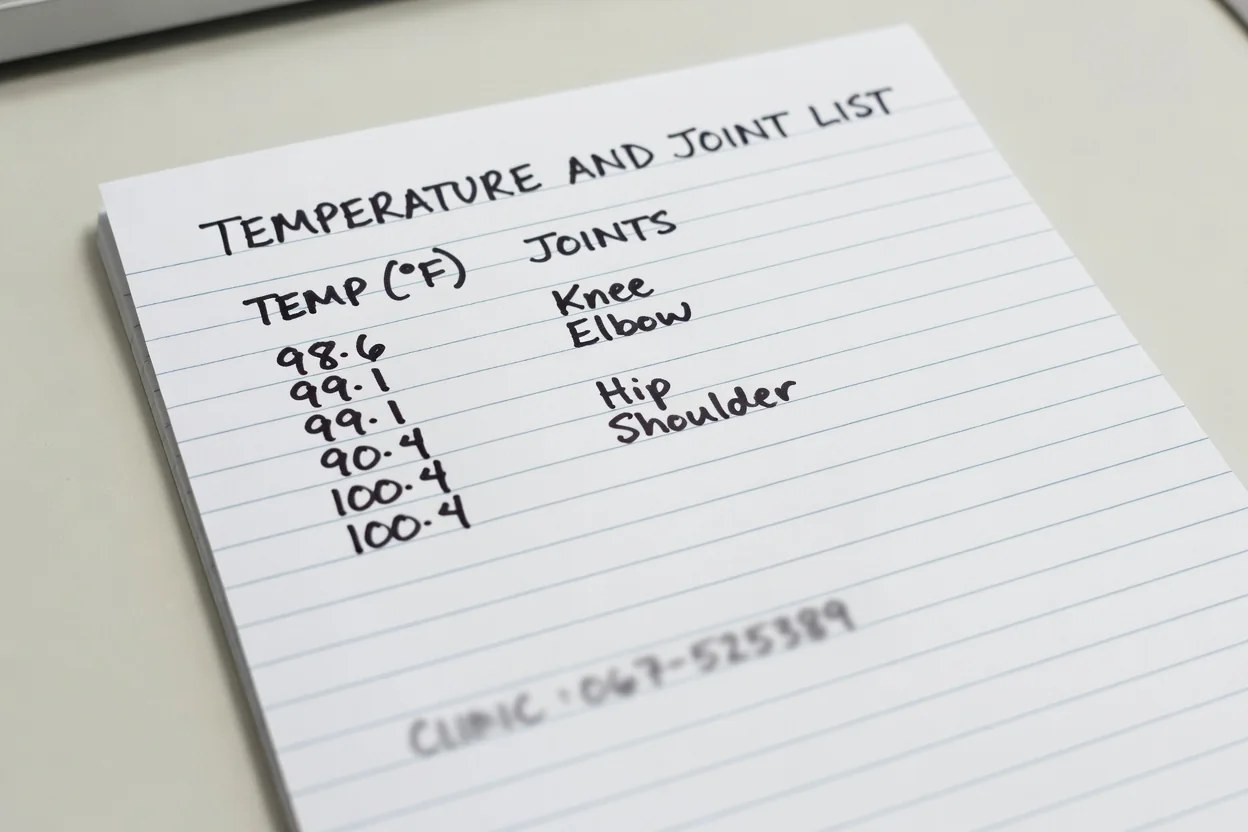 TEMPERATURE AND JOINT LIST
TEMP (°F) JOINTS
98.6 Knee
99.1 Elbow
99.1
90.4 Hip
100.4 Shoulder
100.4
CLINIC : 067-525389